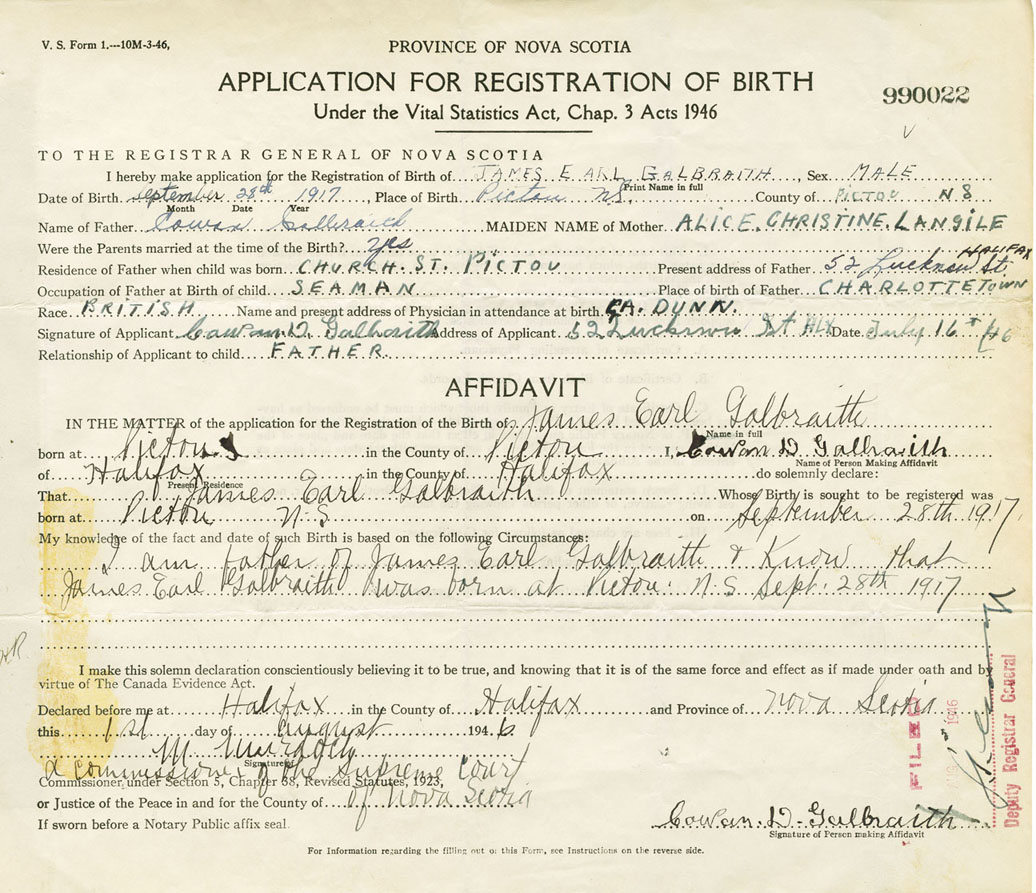 V. S. Form 1.---10M-3-46,
PROVINCE OF NOVA SCOTIA
APPLICATION FOR REGISTRATION OF BIRTH
990022
Under the Vital Statistics Act, Chap. 3 Acts 1946
TO THE REGISTRAR GENERAL OF NOVA SCOTIA
I hereby make application for the Registration of Birth of JAMES EARL GALBRAITH, Sex MALE
Print Name in full
Date of Birth September 28th 1917, Place of Birth Pictou NS. County of PICTOU N S
Month Date Year
Name of Father Cowan Galbraith MAIDEN NAME of Mother ALICE. CHRISTINE. LANGILE
Were the Parents married at the time of the Birth? yes
HALIFAX
Residence of Father when child was born CHURCH. ST. PICTOU Present address of Father 52 Lucknow St.
Occupation of Father at Birth of child SEAMAN Place of birth of Father CHARLOTTETOWN
Race BRITISH Name and present address of Physician in attendance at birth. DUNN.
Signature of Applicant Cowan. D. Galbraith Address of Applicant 52 Lucknow St Hlx Date July 16 46
Relationship of Applicant to child FATHER.
AFFIDAVIT
IN THE MATTER of the application for the Registration of the Birth of James Earl Galbraith
Name in full
born at Pictou in the County of Pictou I, Cowan D Galbraith
Name of Person Making Affidavit
of Halifax in the County of Halifax do solemnly declare:
Present Residence
That James Earl Galbraith Whose Birth is sought to be registered was
born at Pictou N S on September 28th 1917.
My knowledge of the fact and date of such Birth is based on the following Circumstances:
I am father of James Earl Galbraith & Know that
James Earl Galbraith was born at Pictou. N.S Sept. 28th 1917
I make this solemn declaration conscientiously believing it to be true, and knowing that it is of the same force and effect as if made under oath and by
virtue of The Canada Evidence Act.
Declared before me at Halifax in the County of Halifax and Province of Nova Scotia
this 1st day of August 1946.
M Murdoch
Signature of
a Commissioner of the Supreme Court
Commissioner under Section 3, Chapter 38, Revised Statutes, 1923,
or Justice of the Peace in and for the County of of Nova Scotia
If sworn before a Notary Public affix seal.
Cowan. D. Galbraith
Signature of Person making Affidavit
For Information regarding the filling out of this Form, see Instructions on the reverse side.
FILED
1946
Deputy Registrar General